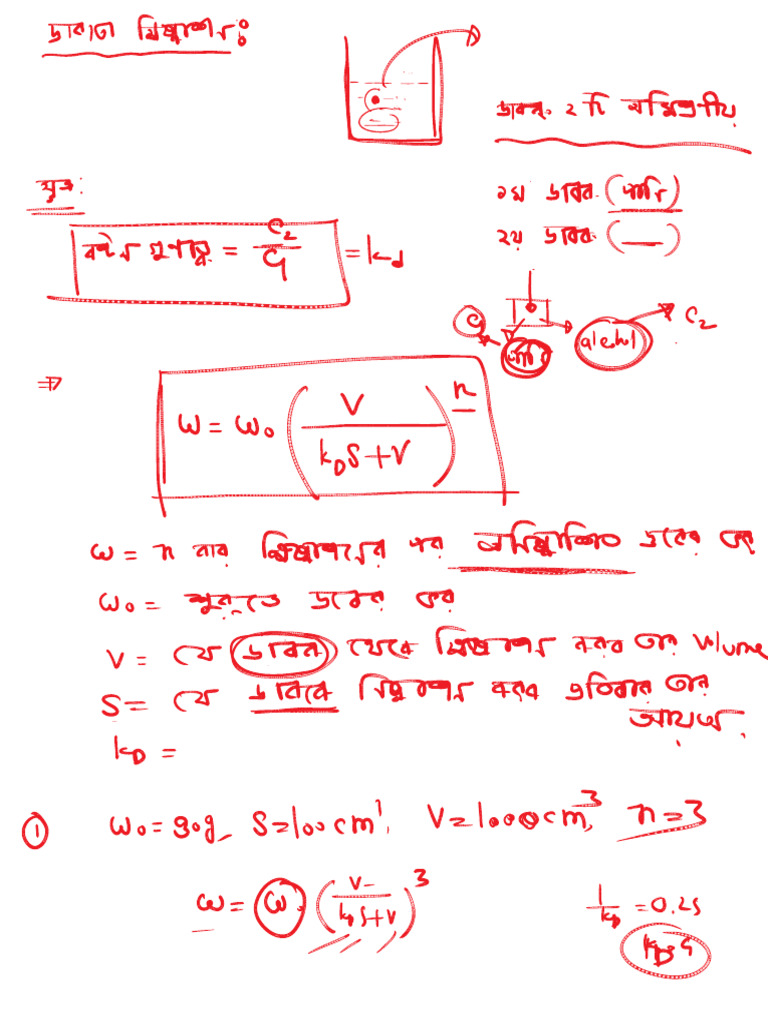 দ্রাবক নিষ্কাশন :
দ্রাবক: ২টি অমিশ্রণীয়
সূত্র:
১ম দ্রাবক (পানি)
২য় দ্রাবক (__)
বন্টন গুণাঙ্ক = C₂/C₁ = K_d
C₁ পানি alcohol → C₂
⇒ W = W₀ (V / (K_D S + V))ⁿ
W = n বার নিষ্কাশনের পর অনিষ্কাশিত দ্রবের ভর
W₀ = শুরুতে দ্রবের ভর
V = যে দ্রাবন থেকে নিষ্কাশন করব তার Volume
S = যে দ্রাবকে নিষ্কাশন করব প্রতিবার তার
আয়তন
K_D =
① W₀ = 90g S = 100 cm³, V = 1000 cm³, n = 3
W = W₀ (V / (K_D S + V))³
1/K_D = 0.25
K_D = 4